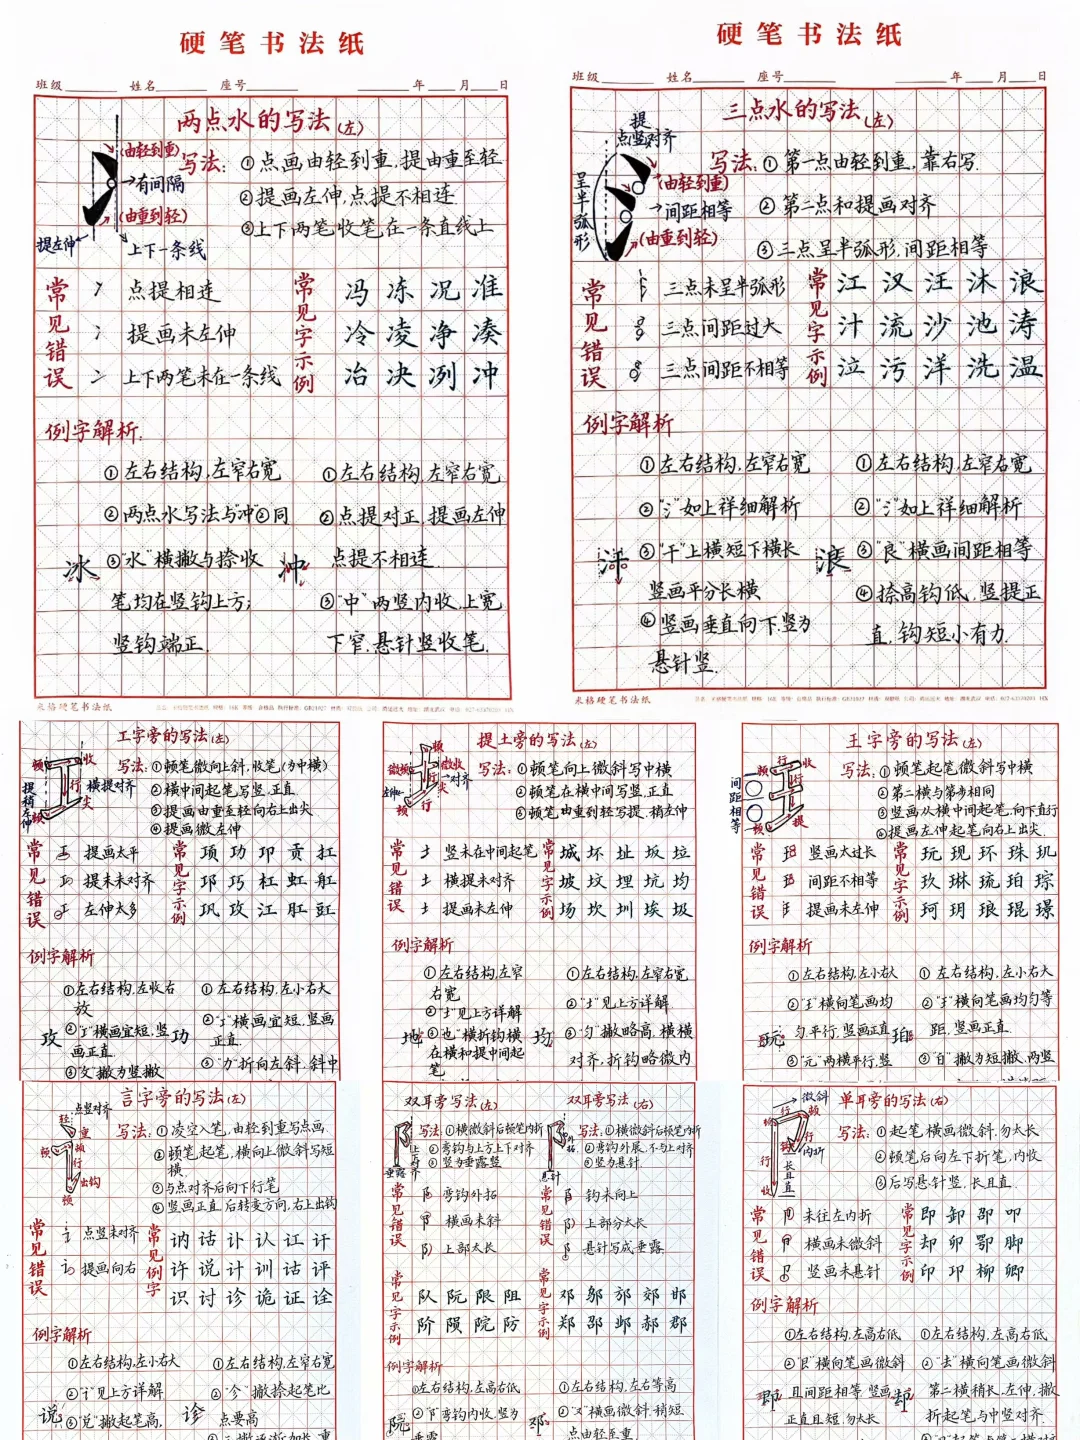 硬笔书法纸
班级 姓名 座号 年 月 日
两点水的写法(左)
(由轻到重)
有间隔
(由重到轻)
提左伸
上下一条线
写法:①点画由轻到重,提由重至轻
②提画左伸,点提不相连
③上下两笔收笔在一条直线上
常见错误
点提相连
提画未左伸
上下两笔未在一条线
常见字示例
冯冻况准
冷凌净凑
冶决冽冲
例字解析:
冰
①左右结构,左窄右宽
②两点水写法与"冲"②同
③"水"横撇与捺收
笔均在竖钩上方;
竖钩端正.
冲
①左右结构,左窄右宽
②点提对正,提画左伸
点提不相连.
③"中"两竖内收,上宽
下窄.悬针竖收笔.
米格硬笔书法纸
硬笔书法纸
班级 姓名 座号 年 月 日
三点水的写法(左)
提
点竖对齐
(由轻到重)
间距相等
(由重到轻)
呈半弧形
写法:①第一点由轻到重,靠右写.
②第二点和提画对齐
③三点呈半弧形,间距相等
常见错误
三点未呈半弧形
三点间距过大
三点间距不相等
常见字示例
江汉汪沐浪
汁流沙池涛
泣污洋洗温
例字解析
汗
①左右结构,左窄右宽
②"氵"如上详细解析
③"干"上横短下横长
竖画平分长横
④竖画垂直向下,竖为
悬针竖.
浪
①左右结构,左窄右宽
②"氵"如上详细解析
③"良"横画间距相等
④捺高钩低,竖提正
直,钩短小有力.
工字旁的写法(左)
顿
收
行
横提对齐
尖
提稍左伸
顿
写法:①顿笔微向上斜,收笔(为中横)
②横中间起笔,写竖,正直.
③提画由重至轻向右上出尖
④提画微左伸
常见错误
提画太平
提末未对齐
左伸太多
常见字示例
项功邛贡扛
邛巧杠虹舡
巩攻江肛豇
例字解析
攻
①左右结构,左收右
放
②"工"横画宜短,竖
画正直.
③"攵"撇为竖撇
功
①左右结构,左小右大
②"工"横画宜短,竖画
正直.
③"力"折向左斜,斜中
提土旁的写法(左)
写法:①顿笔向上微斜写中横
②顿笔在横中间写竖,正直
③顿笔由重到轻写提,稍左伸
常见错误
竖未在中间起笔
横提未对齐
提画未左伸
常见字示例
城坏址坂垃
坡坟埋坑均
场坎圳埃圾
例字解析
地
①左右结构,左窄
右宽
②"土"见上方详解
③"也"横折钩横
在横和提中间起
笔
均
①左右结构,左窄右宽
②"土"见上方详解.
③"匀"撇略高,横横
对齐,折钩略微内
王字旁的写法(左)
间距相等
顿
收
行
提
写法:①顿笔起笔微斜写中横
②第二横与第步相同
③竖画从横中间起笔,向下直行
④提画左伸起笔向右上出尖.
常见错误
竖画太过长
间距不相等
提画未左伸
常见字示例
玩现环珠玑
玖琳琉珀琮
珂玥琅琨璟
例字解析
玩
①左右结构,左小右大
②"王"横向笔画均
匀平行,竖画正直
③"元"两横平行,竖
珀
①左右结构,左小右大
②"王"横向笔画均匀等
距,竖画正直.
③"白"撇为短撇,两竖
言字旁的写法(左)
点竖对齐
轻
重
顿
行
出钩
顿
写法:①凌空入笔,由轻到重写点画
②顿笔起笔,横向上微斜写短
横.
③与点对齐后向下行笔
④竖画正直,后转变方向,右上出钩
常见错误
点竖未对齐
提画向右
常见例字
讷诂讣认讧讦
许说计训诂评
识讨诊诡证诠
例字解析
说
①左右结构,左小右大
②"讠"见上方详解
③"兑"撇起笔高,
诊
①左右结构,左窄右宽
②"㐱"撇捺起笔比
点要高
双耳旁写法(左)
上与对齐
垂露
写法:①横微斜后顿笔内折
②弯钩与上方上下对齐
③竖为垂露竖
常见错误
弯钩外拓
横画未斜
上部太长
常见字示例
队阮限阻
阶陨院防
例字解析
院
①左右结构,左高右低
②"阝"弯钩内收,竖为
垂露
双耳旁写法(右)
外拓
悬针
写法:①横微斜后顿笔内折
②弯钩外展,不与上对齐
③竖为悬针.
常见错误
钩未向上
上部分太长
悬针写成垂露
常见字示例
邓邬邡郊邯
郑邵邮郝郡
邓
①左右结构,左右等高
②"又"横画微斜,稍短.
点由轻至重.
单耳旁的写法(右)
微斜
行
顿
内折
长且直
收
写法:①起笔,横画微斜,勿太长
②顿笔后向左下折笔,内收
③后写悬针竖,长且直.
常见错误
未往左内折
横画未微斜
竖画未悬针
常见字示例
即卸邵叩
却卯鄂脚
印卭柳卿
例字解析
即
①左右结构,左高右低
②"艮"横向笔画微斜
且间距相等,竖画
正直且短,勿太长
却
①左右结构,左高右低
②"去"横向笔画微斜
第二横稍长,左伸,撇
折起笔与中竖对齐.